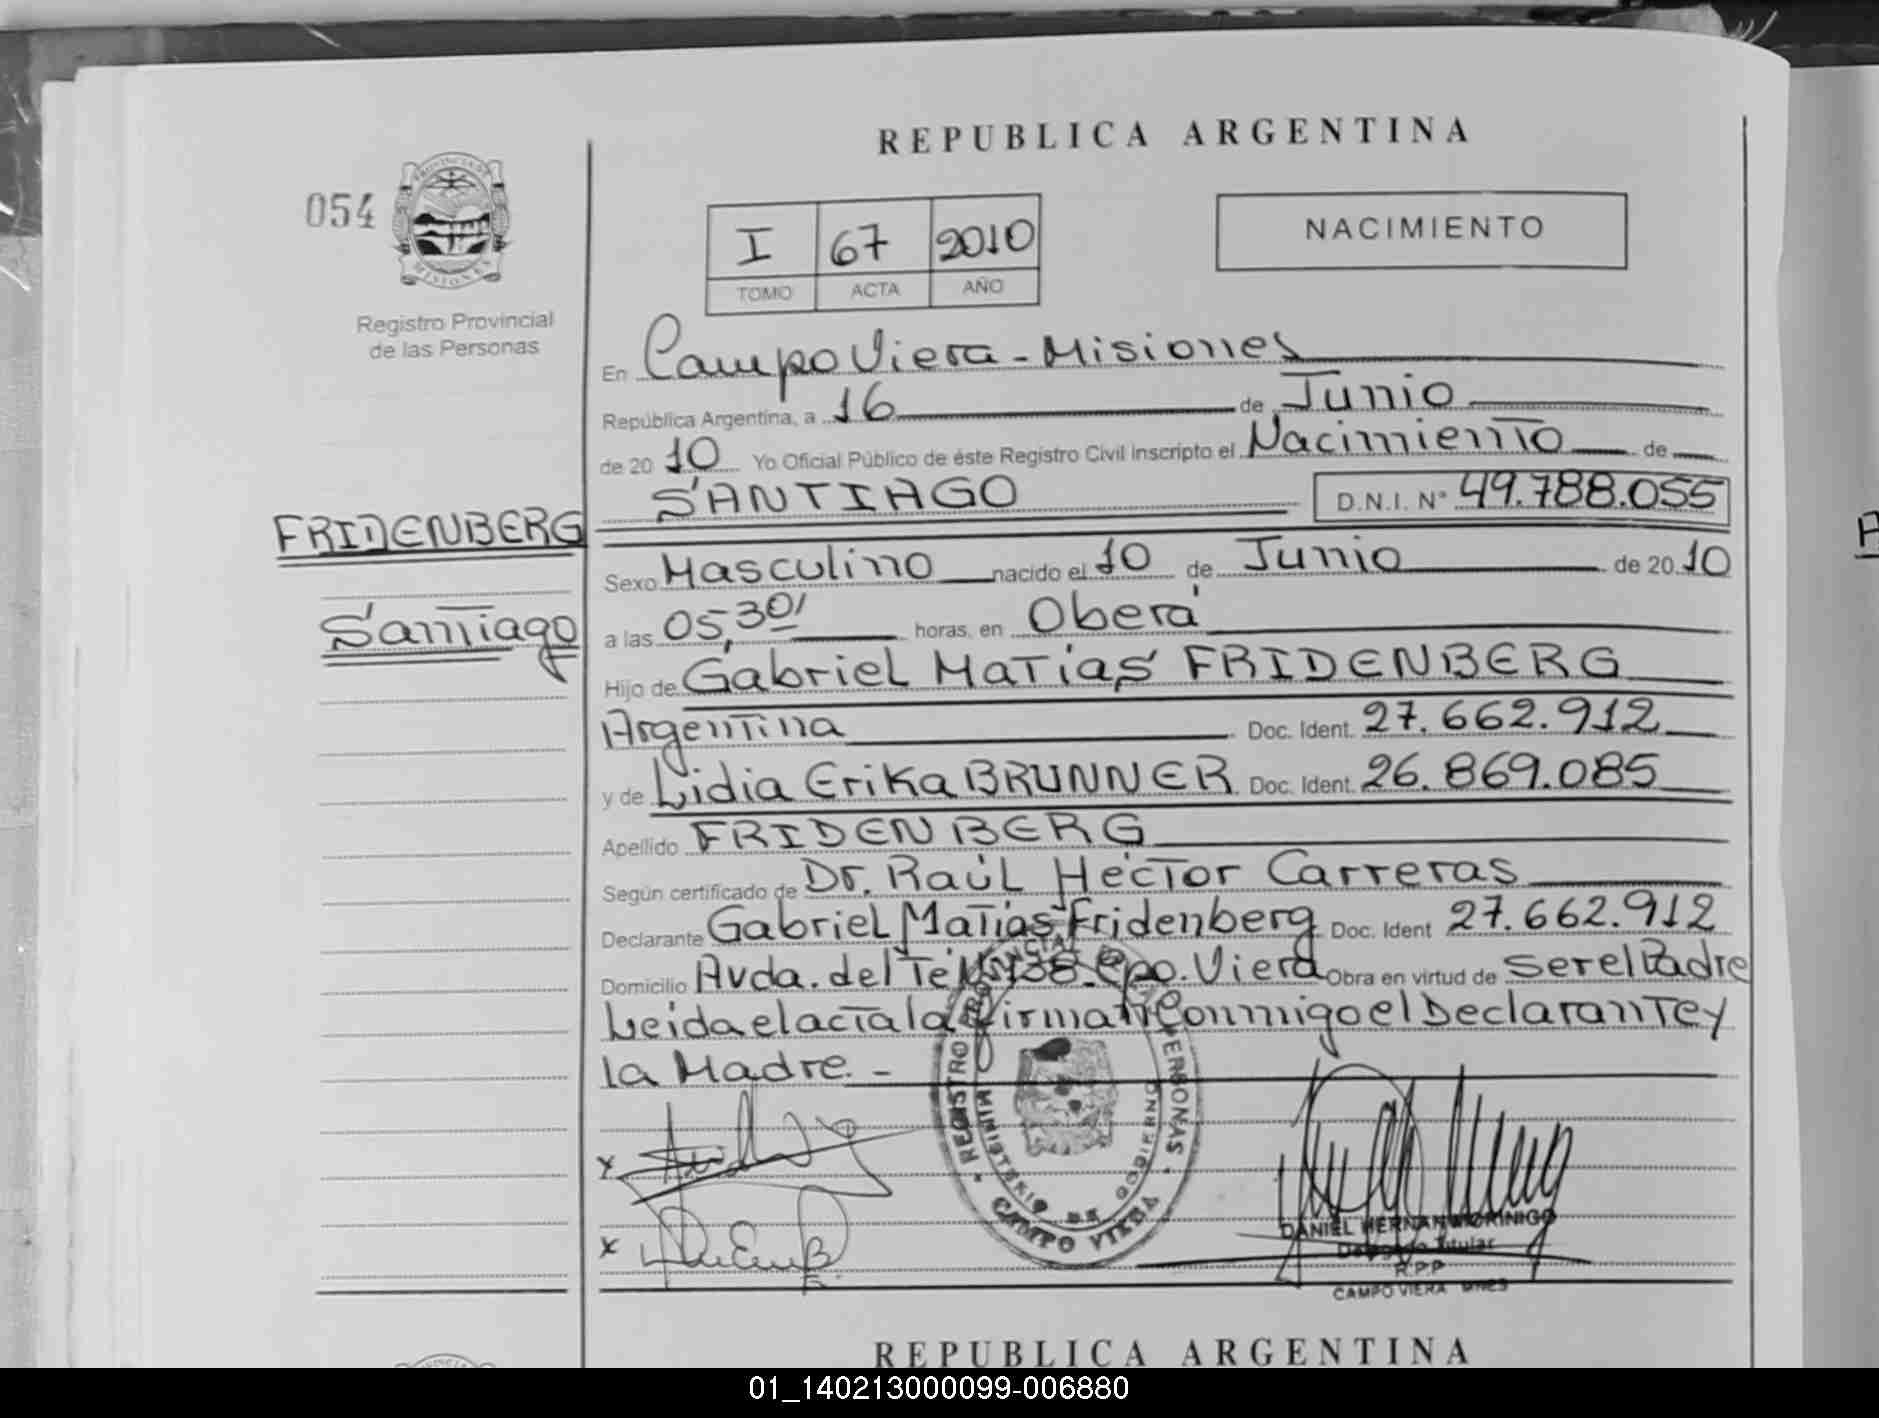 REPUBLICA ARGENTINA
054
PROVINCIA DE MISIONES
Registro Provincial
de las Personas
I 67 2010
TOMO ACTA AÑO
NACIMIENTO
En Campo Viera - Misiones
República Argentina, a 16 de Junio
de 20 10 Yo Oficial Público de éste Registro Civil Inscripto el Nacimiento de
SANTIAGO D.N.I. N° 49.788.055
FRIDENBERG
Santiago
Sexo Masculino nacido el 10 de Junio de 20 10
a las 05,30' horas, en Oberá
Hijo de Gabriel Matías FRIDENBERG
Argentina Doc. Ident. 27.662.912
y de Lidia Erika BRUNNER Doc. Ident. 26.869.085
Apellido FRIDENBERG
Según certificado de Dr. Raúl Héctor Carreras
Declarante Gabriel Matías Fridenberg Doc. Ident 27.662.912
Domicilio Avda. del Té Cpo. Viera Obra en virtud de ser el Padre
Leida el acta la firman Conmigo el Declarante y
la Madre. -
REGISTRO PROVINCIAL DE LAS PERSONAS
MINISTERIO DE GOBIERNO
CAMPO VIERA
x
x
DANIEL HERNAN MORINIGO
Delegado Titular
R.P.P
CAMPO VIERA MNES
REPUBLICA ARGENTINA
01_140213000099-006880